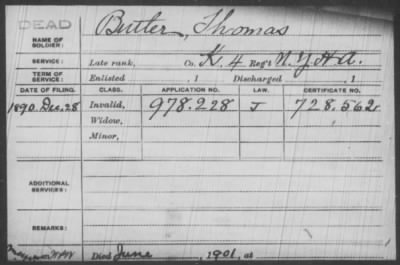 DEAD
NAME OF SOLDIER: Butler, Thomas
SERVICE: Late rank, Co. K. 4 Reg't N.Y.H.A.
TERM OF SERVICE: Enlisted , 1 Discharged , 1
DATE OF FILING. CLASS. APPLICATION NO. LAW. CERTIFICATE NO.
1890. Dec. 28 Invalid, 978.228 J 728.562
Widow,
Minor,
ADDITIONAL SERVICES:
REMARKS:
Died June , 1901, at